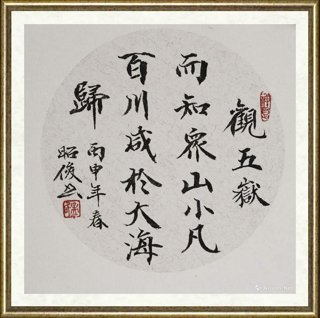 觀五嶽
而知衆山小凡
百川咸於大海
歸
丙申年春
昭俊书